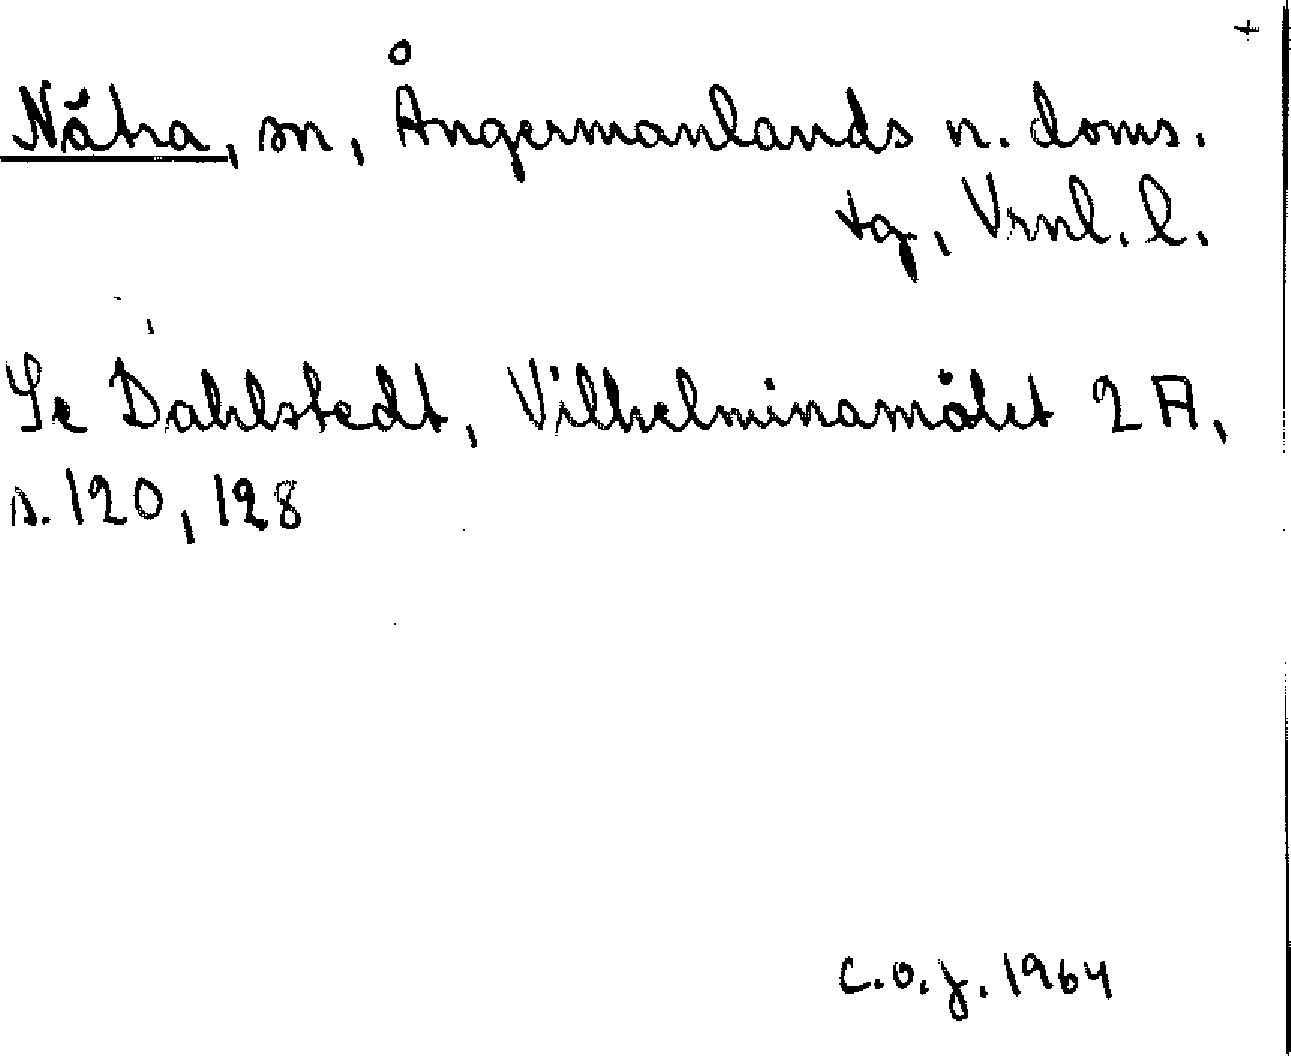 +
Nätra, sn, Ångermanlands n. doms.
tg, Vrnl. l.
Se Dahlstedt, Vilhelminamålet 2 A,
s. 120, 128
C.O.J. 1964